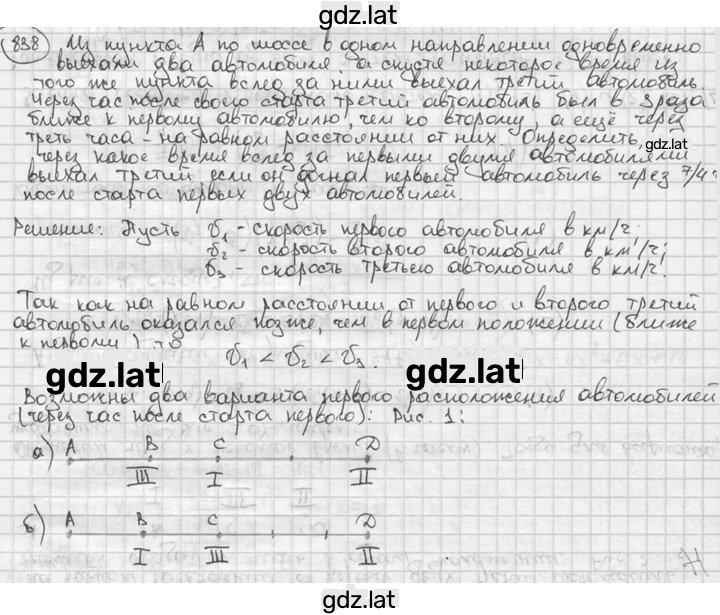 gdz.lat
838 Из пункта А по шоссе в одном направлении одновременно
выехали два автомобиля, а спустя некоторое время из
того же пункта вслед за ними выехал третий автомобиль.
Через час после своего старта третий автомобиль был в 3 раза
ближе к первому автомобилю, чем ко второму, а ещё через
треть часа - на равном расстоянии от них. Определить,
gdz.lat
через какое время вслед за первыми двумя автомобилями
выехал третий если он догнал первый автомобиль через 7/4 ч
после старта первых двух автомобилей.
Решение: Пусть v1 - скорость первого автомобиля в км/ч;
v2 - скорость второго автомобиля в км/ч;
v3 - скорость третьего автомобиля в км/ч.
Так как на равном расстоянии от первого и второго третий
автомобиль оказался позже, чем в первом положении (ближе
к первому), то
v1 < v2 < v3.
gdz.lat gdz.lat
Возможны два варианта первого расположения автомобилей
(через час после старта первого): Рис. 1:
а) A B C D
III I II
б) A B C D
I III II
gdz.lat